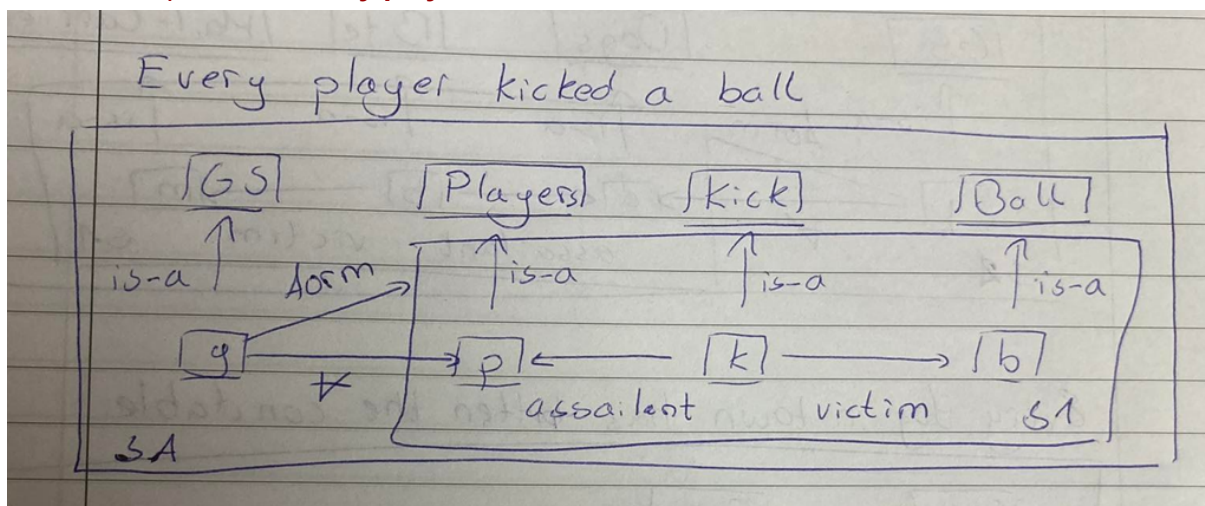 Every player kicked a ball
GS Players Kick Ball
is-a form is-a is-a is-a
g p k b
∀ assailent victim S1
SA